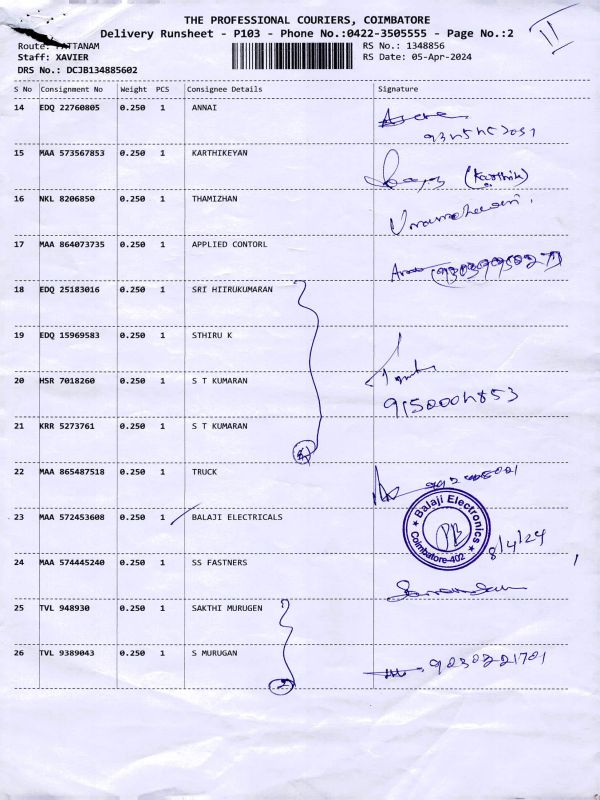 THE PROFESSIONAL COURIERS, COIMBATORE
Delivery Runsheet - P103 - Phone No.:0422-3505555 - Page No.:2
Route: PATTANAM RS No.: 1348856
Staff: XAVIER RS Date: 05-Apr-2024
DRS No.: DCJB134885602
II
S No Consignment No Weight PCS Consignee Details Signature
14 EDQ 22760805 0.250 1 ANNAI
15 MAA 573567853 0.250 1 KARTHIKEYAN (Karthik)
16 NKL 8206850 0.250 1 THAMIZHAN
17 MAA 864073735 0.250 1 APPLIED CONTORL
18 EDQ 25183016 0.250 1 SRI HIIRUKUMARAN
19 EDQ 15969583 0.250 1 STHIRU K
20 HSR 7018260 0.250 1 S T KUMARAN
21 KRR 5273761 0.250 1 S T KUMARAN
22 MAA 865487518 0.250 1 TRUCK
23 MAA 572453608 0.250 1 BALAJI ELECTRICALS
Balaji Electronics
Coimbatore-402
8/4/24
24 MAA 574445240 0.250 1 SS FASTNERS
25 TVL 948930 0.250 1 SAKTHI MURUGEN
26 TVL 9389043 0.250 1 S MURUGAN
2